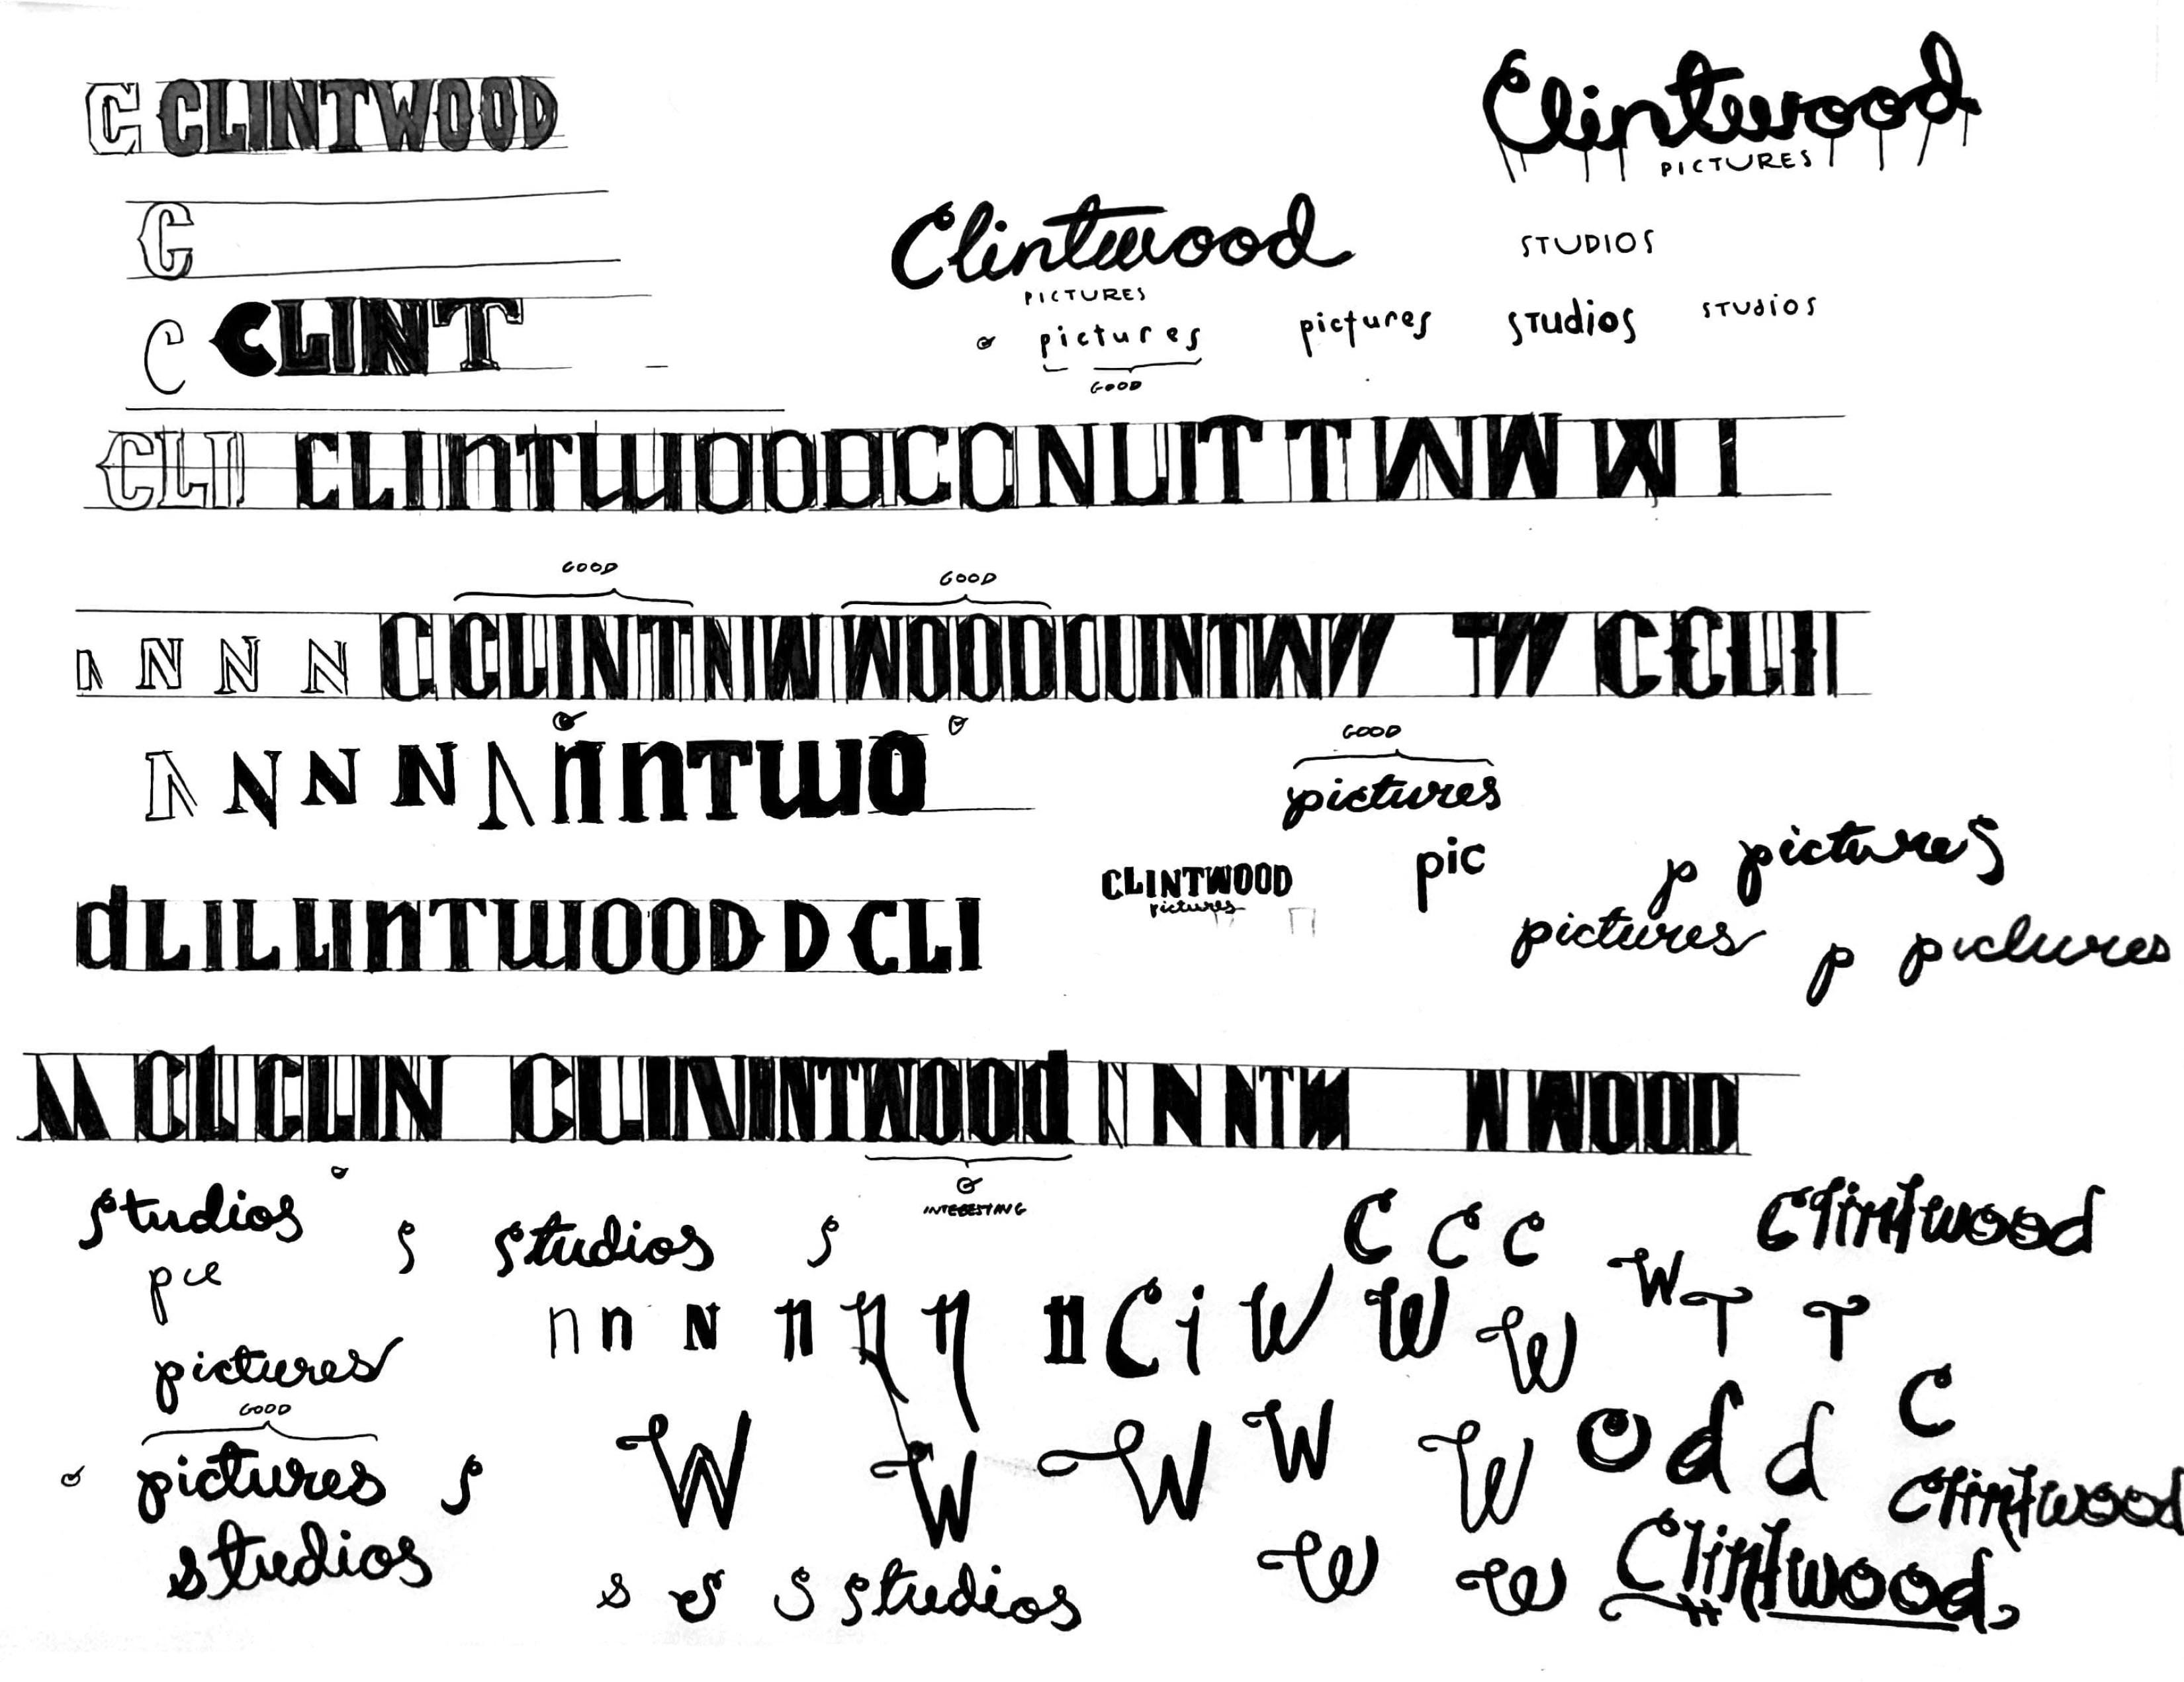 C CLINTWOOD
Clintwood
PICTURES
C
Clintwood
PICTURES
STUDIOS
C CLINT
pictures
pictures
studios
STUdiOS
GOOD
CLI CLINTWOOD C C N L I T T W W W I
GOOD
GOOD
N N N C CLINT N W WOOD CLINTW W TW C C L I
N N N N n nTWO
GOOD
pictures
pic
p pictures
CLINTWOOD
pictures
dLILLINTWOOD D CLI
pictures
p pictures
CL CLIN CLIN INTWOOd N N NTW W WOOD
INTERESTING
studios
s studios s
C C C
Clintwood
pic
n n N n n n n C i W W W W T T
pictures
C
GOOD
pictures s
W W W W W O d d
Clintwood
studios
s s s studios
W W
Clintwood